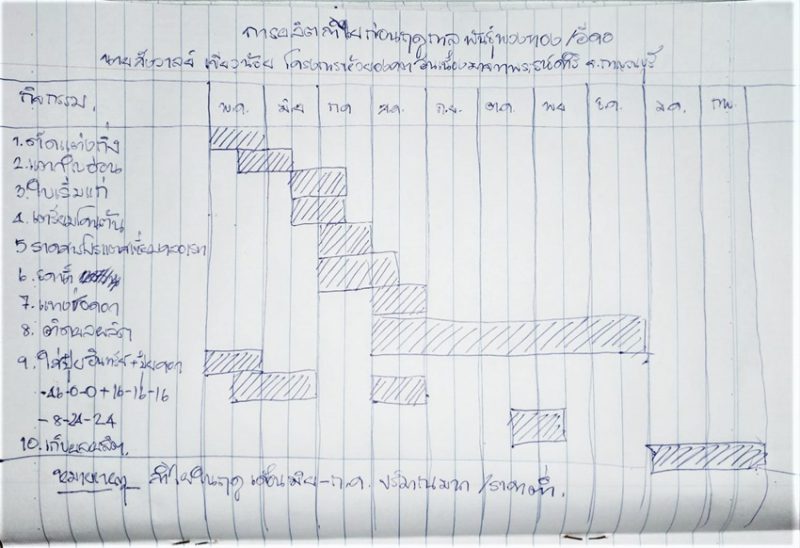 การผลิตลำไยก่อนฤดูกาล พันธุ์พวงทอง/อีดอ
นายสังวาลย์ เขียวน้อย โครงการห้วยองคต อันเนื่องมาจากพระราชดำริ จ.กาญจนบุรี
กิจกรรม. พ.ค. มิ.ย ก.ค ส.ค. ก.ย. ต.ค. พ.ย ธ.ค. ม.ค. ก.พ.
1. ตัดแต่งกิ่ง
2. แตกใบอ่อน
3. ใบเริ่มแก่
4. เตรียมโคนต้น
5 ราดสารโปแตสเซียมคลอเรท
6. รดน้ำ
7. แทงช่อดอก
8. ติดผลผลิต
9. ใส่ปุ๋ยอินทรีย์+ปุ๋ยคอก
-46-0-0+16-16-16
-8-24-24
10. เก็บผลผลิต.
หมายเหตุ ลำไยในฤดู เดือนมิย-ก.ค. ปริมาณมาก/ราคาต่ำ.